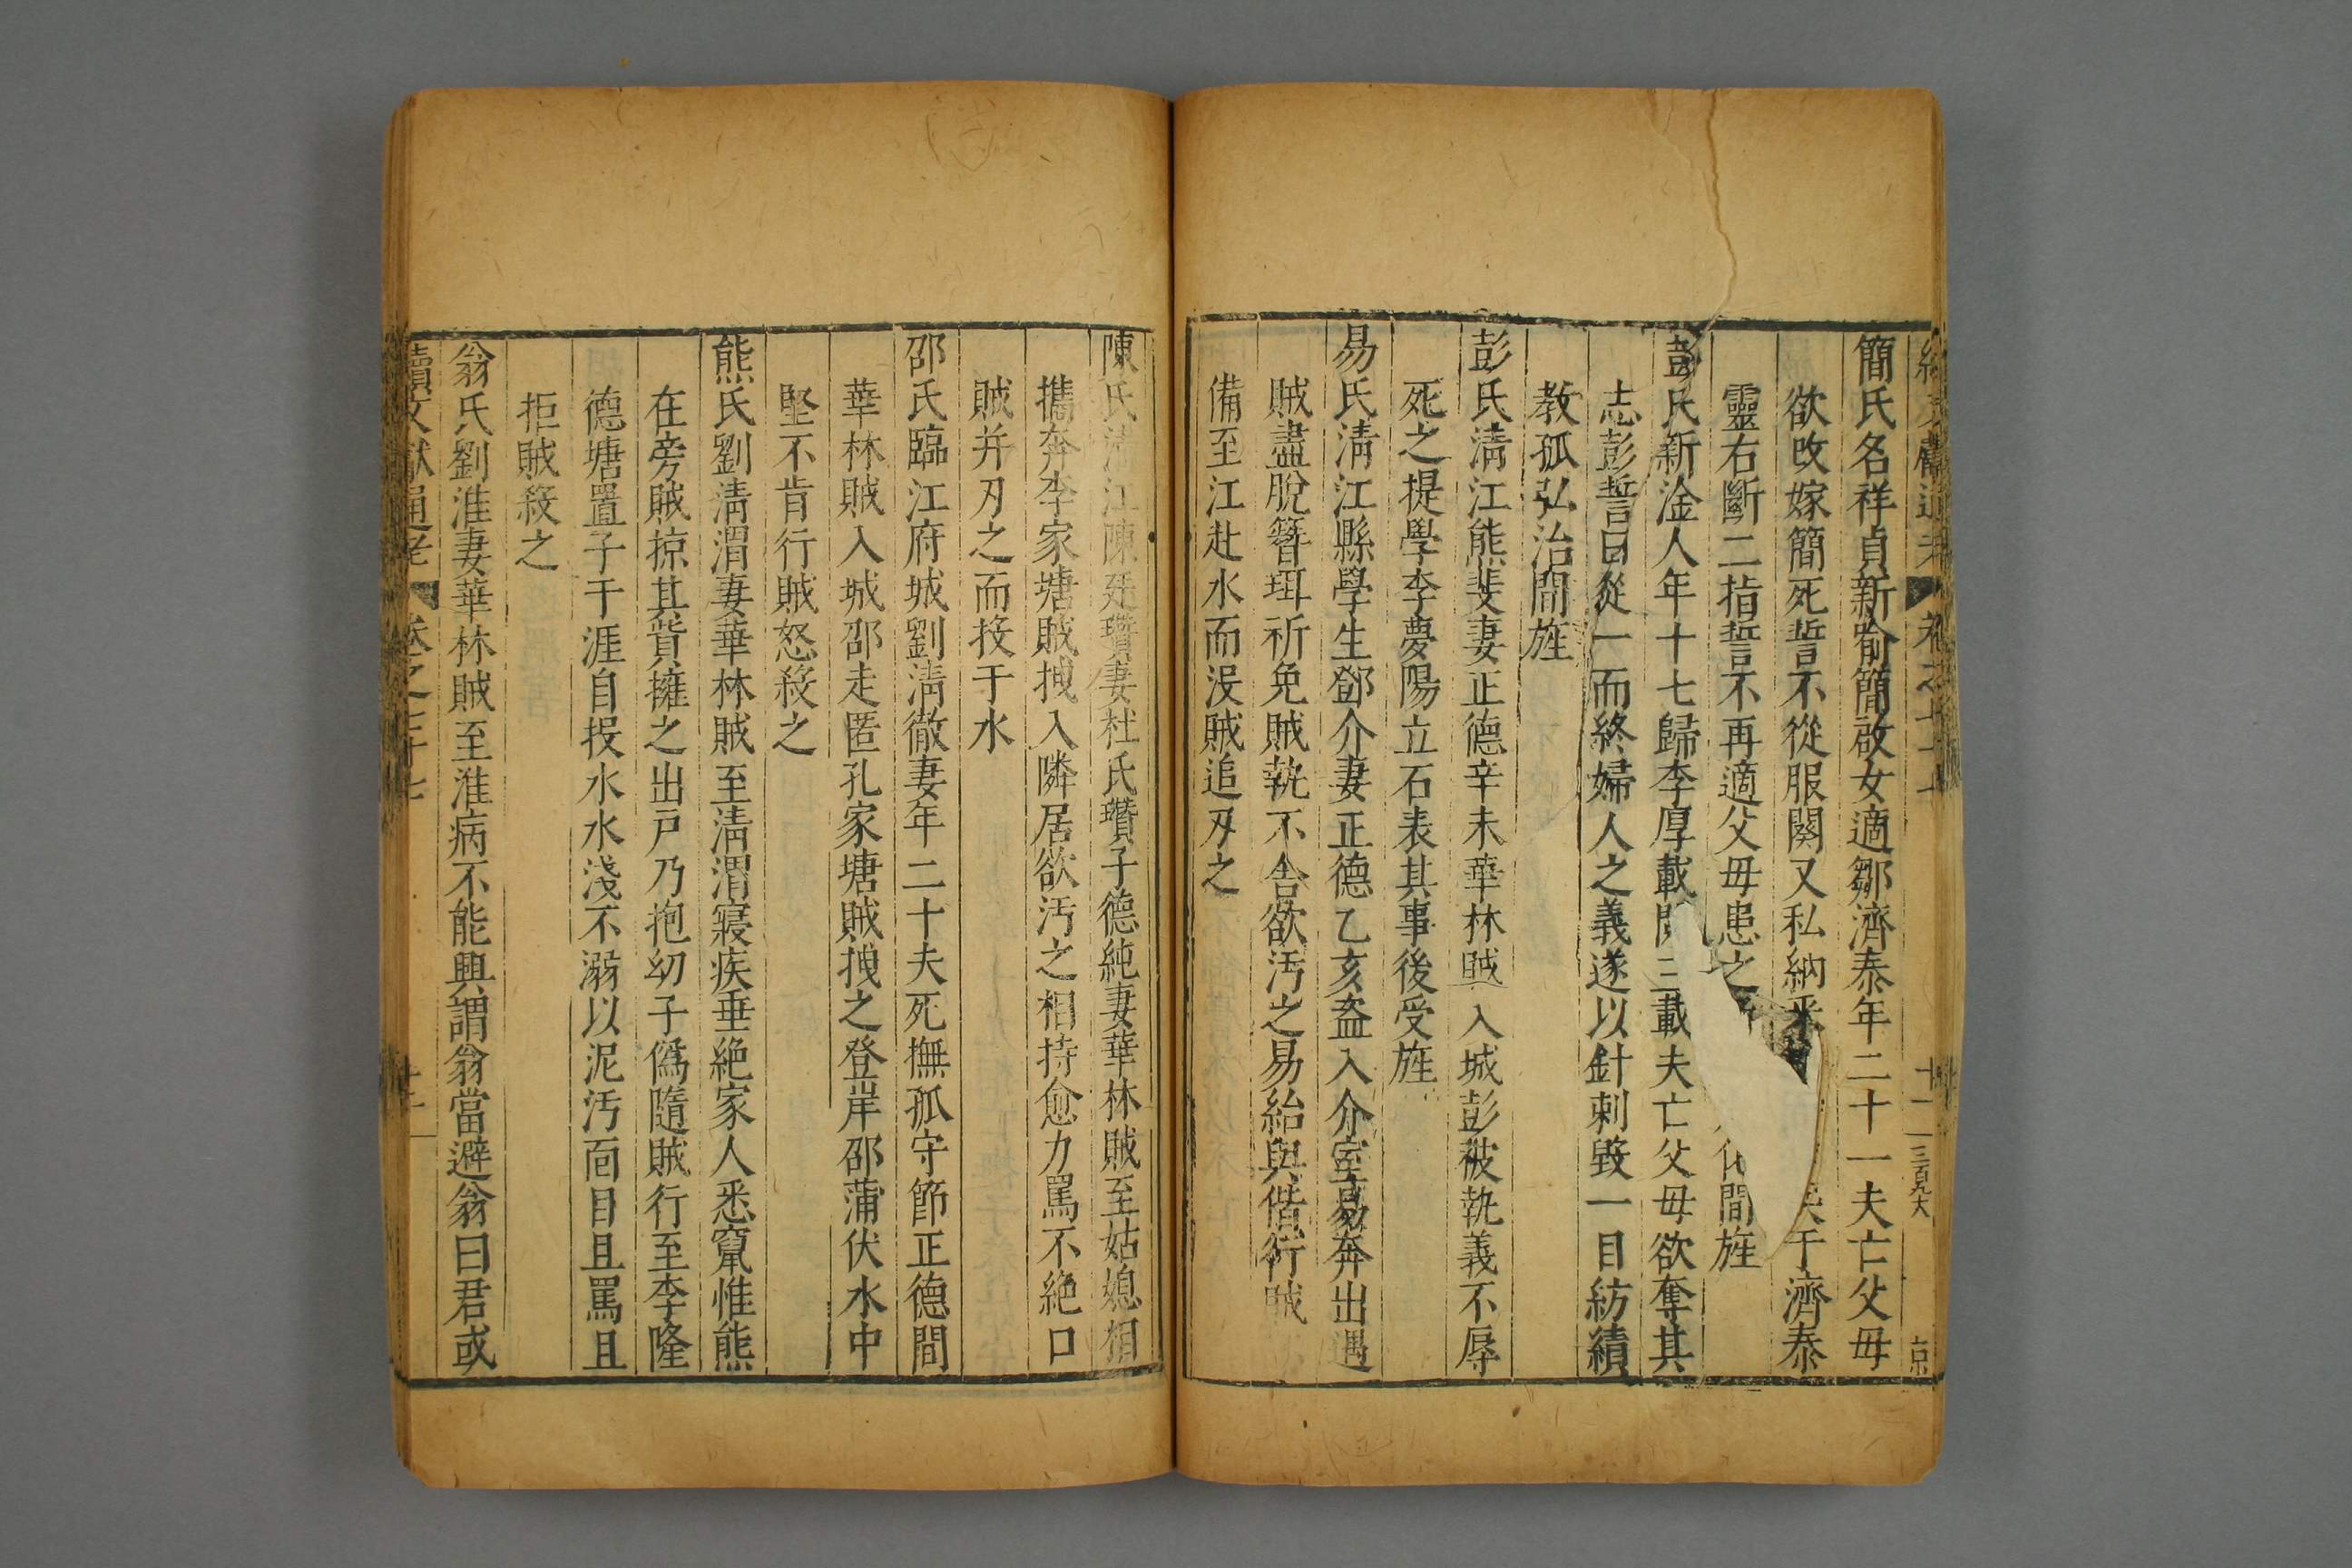 簡氏名祥貞新喻簡啟女適鄒濟泰年二十一夫亡父毋
欲改嫁簡死誓不從服闋又私納于濟泰
靈右斷二指誓不再適父毋患之間旌
彭氏新淦人年十七歸李厚載三載夫亡父毋欲奪其
志彭誓曰從一而終婦人之義遂以針刺毀一目紡績
教孤弘治間旌
彭氏淸江熊斐妻正德辛未華林賊入城彭被執義不辱
死之提學李夢陽立石表其事後受旌
易氏淸江縣學生鄧介妻正德乙亥盜入介室易奔出遇
賊盡脫簪珥祈免賊執不舍欲汚之易紿與偕行賊
備至江赴水而沒賊追刃之
陳氏淸江陳廷瓚妻杜氏瓚子德純妻華林賊至姑媳相
攜奔李家塘賊拽入隣居欲汚之相持愈力罵不絕口
賊并刃之而投于水
邵氏臨江府城劉淸徹妻年二十夫死撫孤守節正德間
華林賊入城邵走匿孔家塘賊拽之登岸邵蒲伏水中
堅不肯行賊怒殺之
熊氏劉淸渭妻華林賊至淸渭寢疾垂絕家人悉竄惟熊
在旁賊掠其貲擁之出戶乃抱幼子僞隨賊行至李隆
德塘置子于涯自投水水淺不溺以泥汚面目且罵且
拒賊殺之
翁氏劉淮妻華林賊至淮病不能興謂翁當避翁曰君或
續文獻通考 卷之七十七